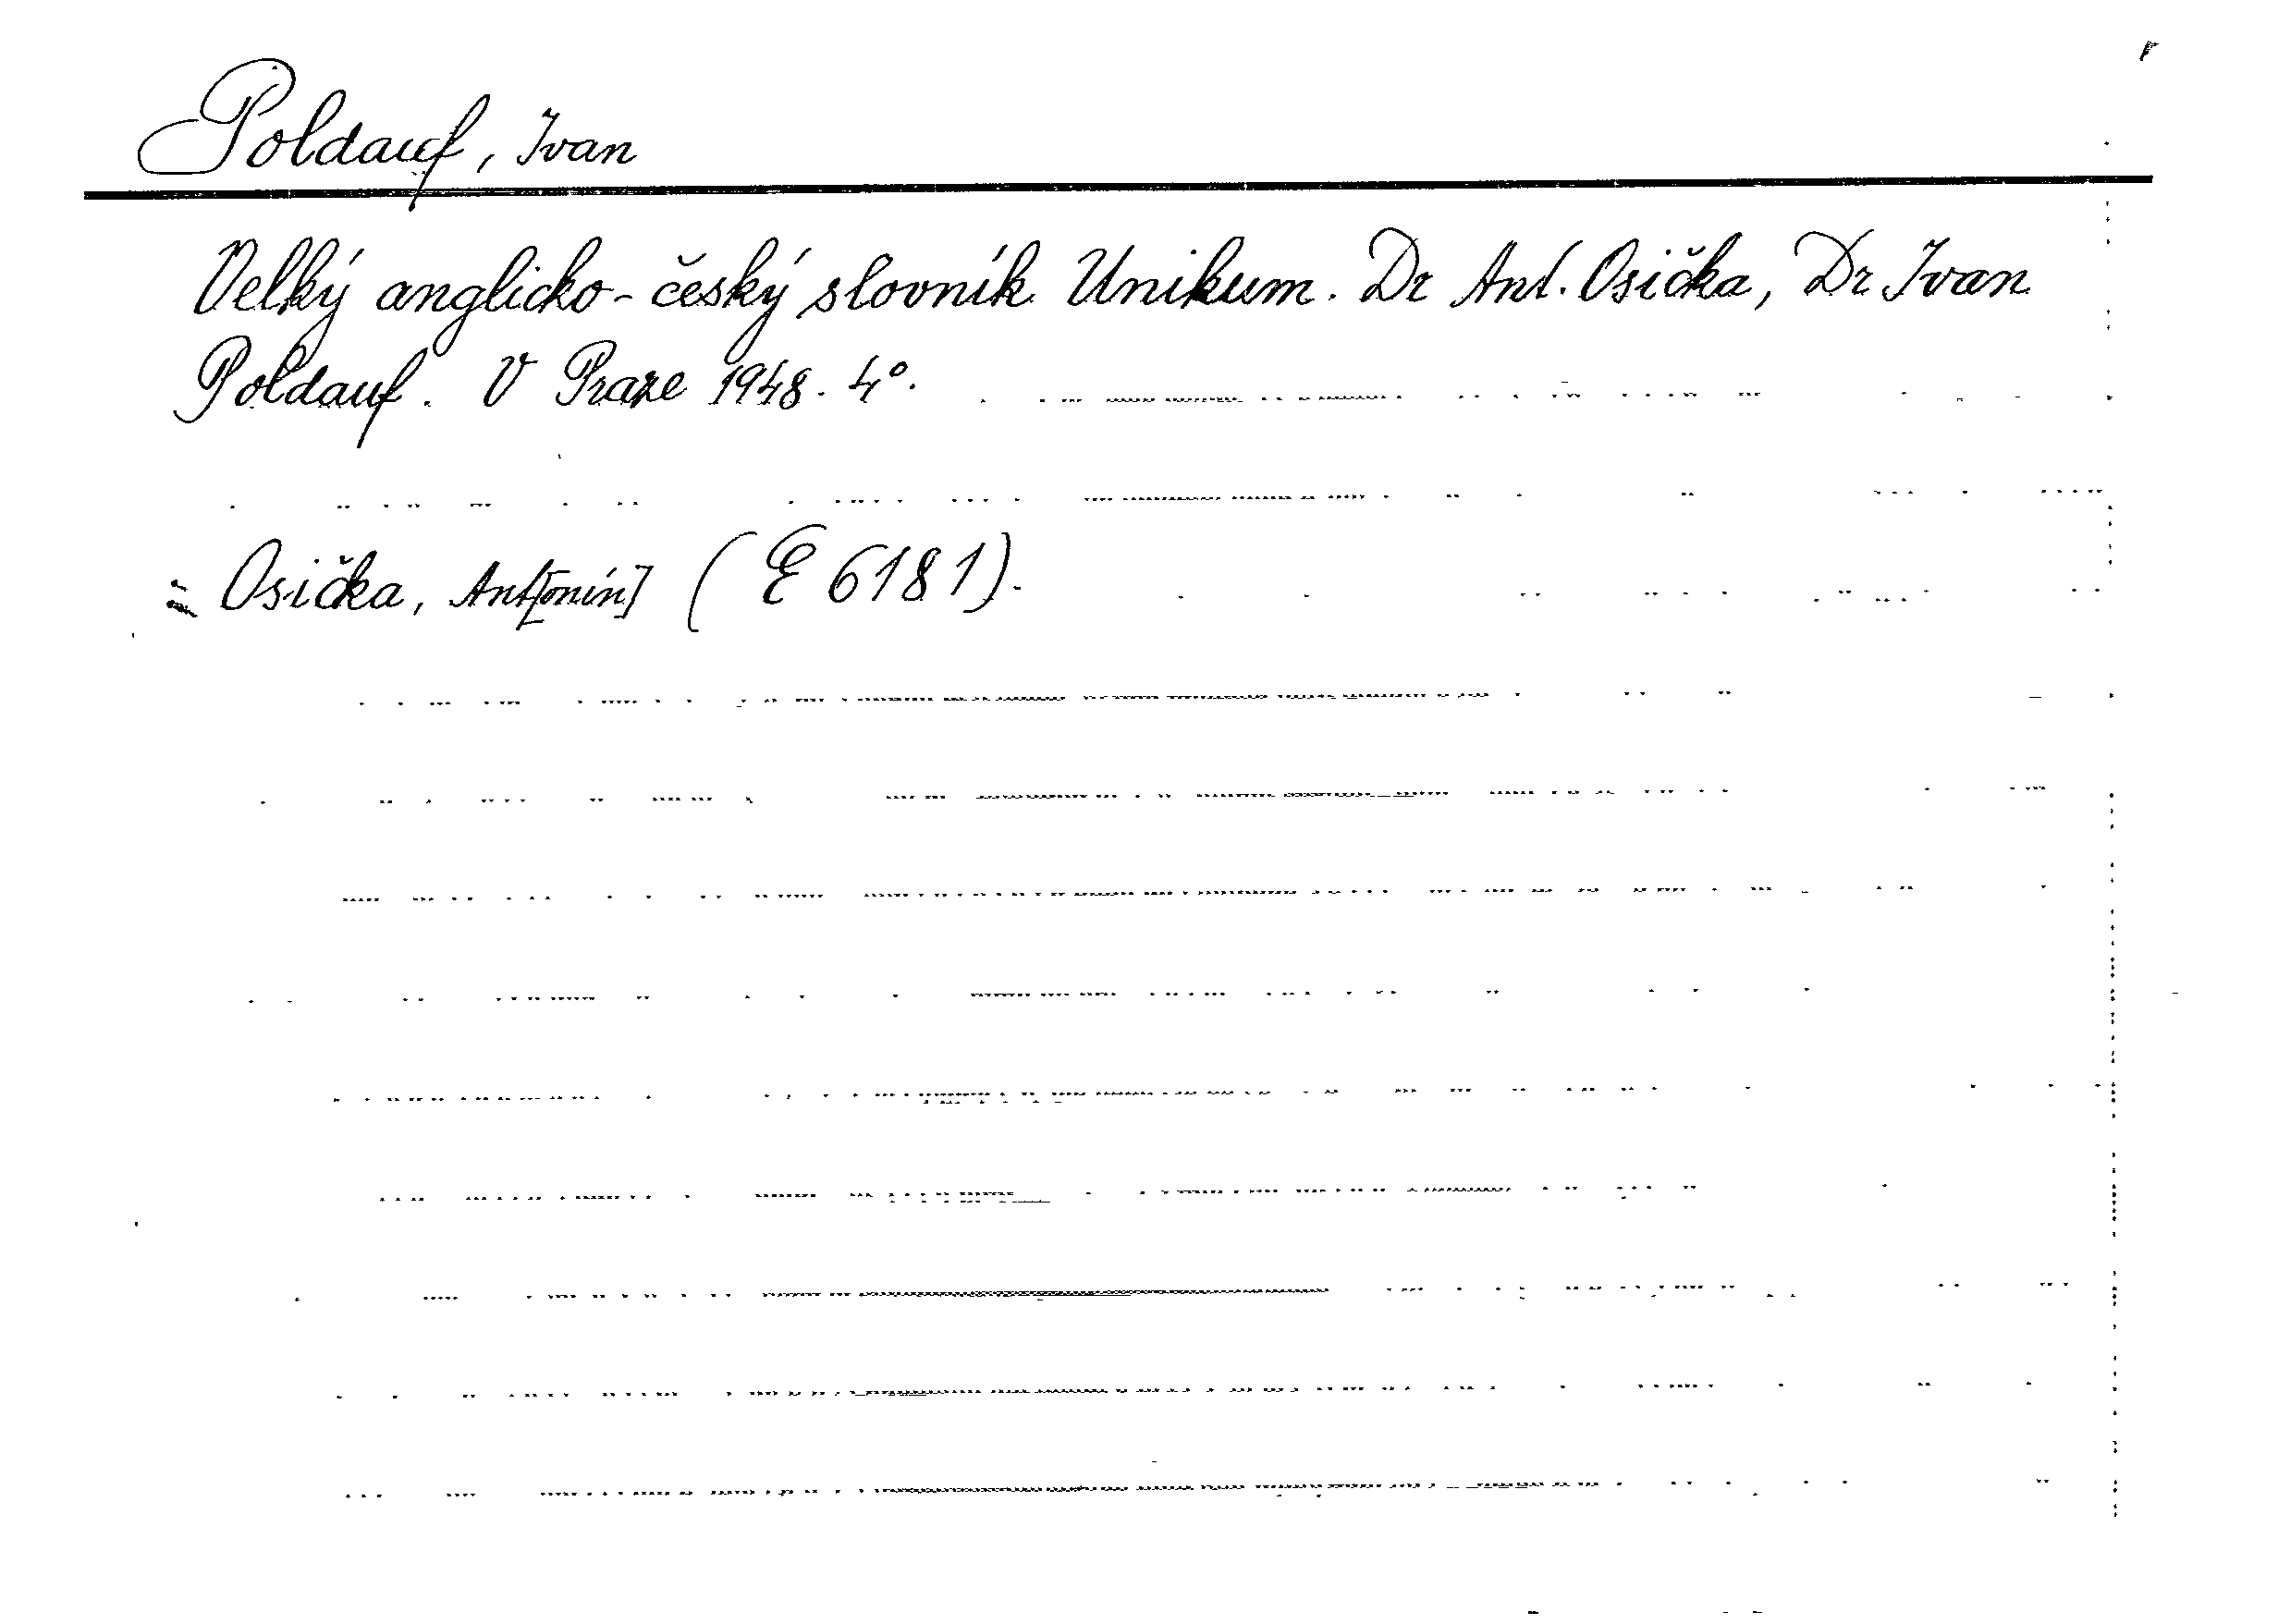 Poldauf, Ivan
Velký anglicko-český slovník Unikum. Dr Ant. Osička, Dr Ivan
Poldauf. V Praze 1948. 4°.
= Osička, Ant[onín] (E 6181).